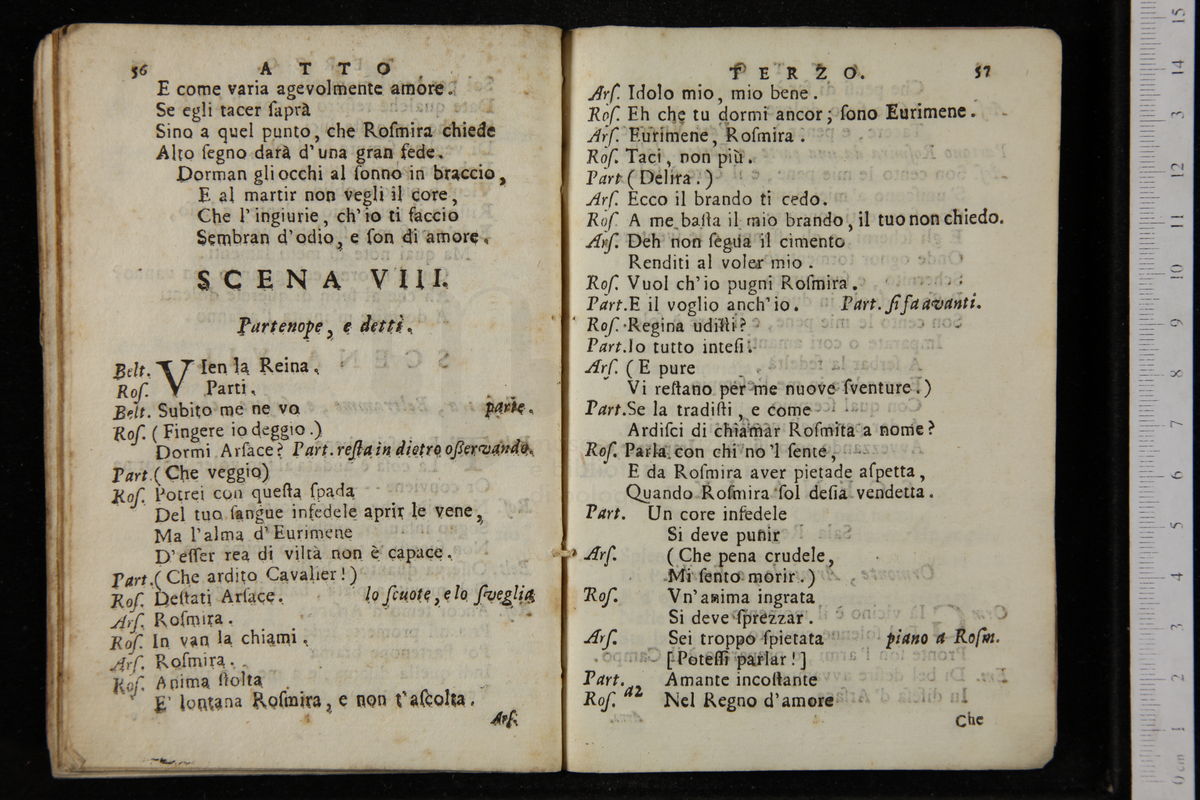 56 ATTO
E come varia agevolmente amore.
Se egli tacer ſaprà
Sino a quel punto, che Roſmira chiede
Alto ſegno darà d'una gran fede.
Dorman gli occhi al ſonno in braccio,
E al martir non vegli il core,
Che l'ingiurie, ch'io ti faccio
Sembran d'odio, e ſon di amore.
SCENA VIII.
Partenope, e detti.
Belt. VIen la Reina.
Roſ. Parti.
Belt. Subito me ne vo parte.
Roſ. (Fingere io deggio.)
Dormi Arſace? Part. reſta in dietro oſſervando.
Part. (Che veggio)
Roſ. Potrei con queſta ſpada
Del tuo ſangue infedele aprir le vene,
Ma l'alma d'Eurimene
D'eſſer rea di viltà non è capace.
Part. (Che ardito Cavalier!)
Roſ. Deſtati Arſace. lo ſcuote, e lo ſveglia
Arſ. Roſmira.
Roſ. In van la chiami.
Arſ. Roſmira.
Roſ. Anima ſtolta
E' lontana Roſmira, e non t'aſcolta.
Arſ.
TERZO. 57
Arſ. Idolo mio, mio bene.
Roſ. Eh che tu dormi ancor; ſono Eurimene.
Arſ. Eurimene, Roſmira.
Roſ. Taci, non più.
Part (Delira.)
Arſ. Ecco il brando ti cedo.
Roſ. A me baſta il mio brando, il tuo non chiedo.
Arſ. Deh non ſegua il cimento
Renditi al voler mio.
Roſ. Vuol ch'io pugni Roſmira.
Part. E il voglio anch'io. Part. ſi fa avanti.
Roſ. Regina udiſti?
Part. Io tutto inteſi.
Arſ. (E pure
Vi reſtano per me nuove ſventure.)
Part. Se la tradiſti, e come
Ardiſci di chiamar Roſmita a nome?
Roſ. Parla con chi no'l ſente,
E da Roſmira aver pietade aſpetta,
Quando Roſmira ſol deſia vendetta.
Part. Un core infedele
Si deve punir
Arſ. (Che pena crudele,
Mi ſento morir.)
Roſ. Un'anima ingrata
Si deve ſprezzar.
Arſ. Sei troppo ſpietata piano a Roſm.
[Poteſſi parlar!]
Part. Amante incoſtante
Roſ. a2 Nel Regno d'amore
Che